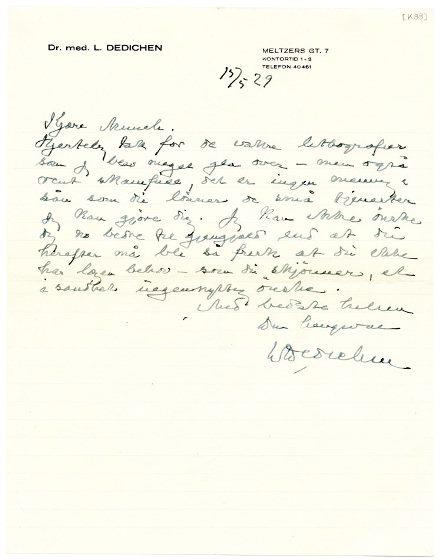 [K88]
Dr. med. L. DEDICHEN
MELTZERS GT. 7
KONTORTID 1-3
TELEFON 40461
15/5 29
Kjære Munch.
Hjertelig tak for de vakre lithografier
som jeg blev meget gla over – men også
rent skamfuld, det er ingen mening i
sån som du lønner de små tjenester
jeg kan gjøre dig. Jeg kan ikke ønske
dig no bedre til gjengjæld end at du
herefter må bli så frisk at du ikke
har læge behov – som du skjønner, et
i sandhet uegennyttig ønske.
Med bedste hilsen
Din hengivne
LDedichen